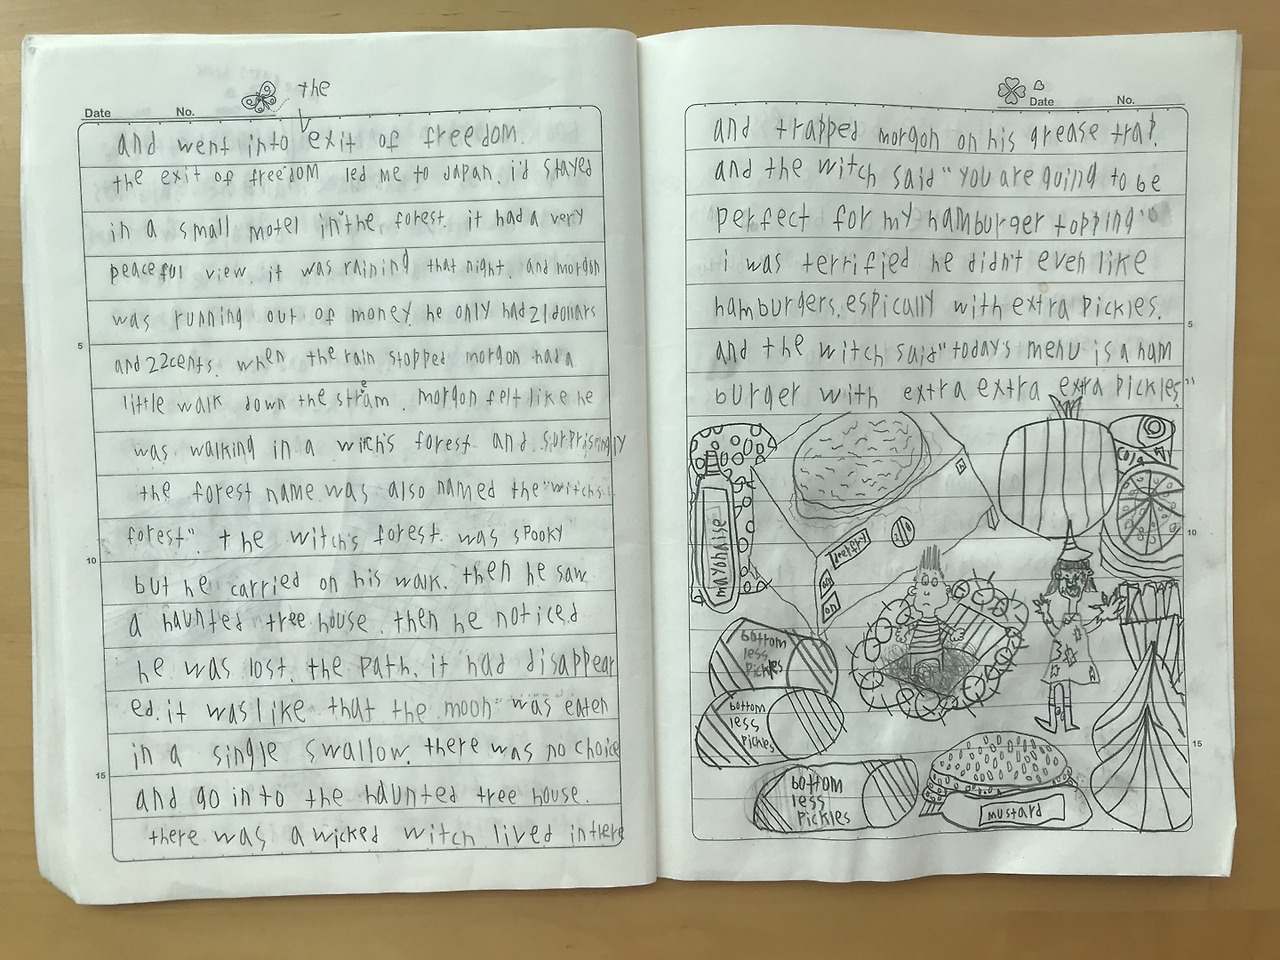 Date No.
the
and went into exit of freedom.
the exit of freedom led me to Japan. i'd stayed
in a small motel in the forest. it had a very
peaceful view. it was raining that night. and morgon
was running out of money. he only had 21 dollars
and 22cents. when the rain stopped morgon had a
little walk down the stream. morgon felt like he
was walking in a witch's forest and surprisingly
the forest name was also named the "witch's
forest". the witch's forest was spooky
but he carried on his walk. then he saw
a haunted tree house. then he noticed
he was lost. the path. it had disappear
ed. it was like that the moon was eaten
in a single swallow. there was no choice
and go into the haunted tree house.
there was a wicked witch lived in there
5
10
15
Date No.
and trapped morgon on his grease trap.
and the witch said "you are going to be
perfect for my hamburger topping"
i was terrified he didn't even like
hamburgers. espically with extra pickles.
and the witch said "todays menu is a ham
burger with extra extra extra pickles"
5
10
15
cola
mayonaise
bottom
less
pickles
bottom
less
pickles
bottom
less
pickles
mustard